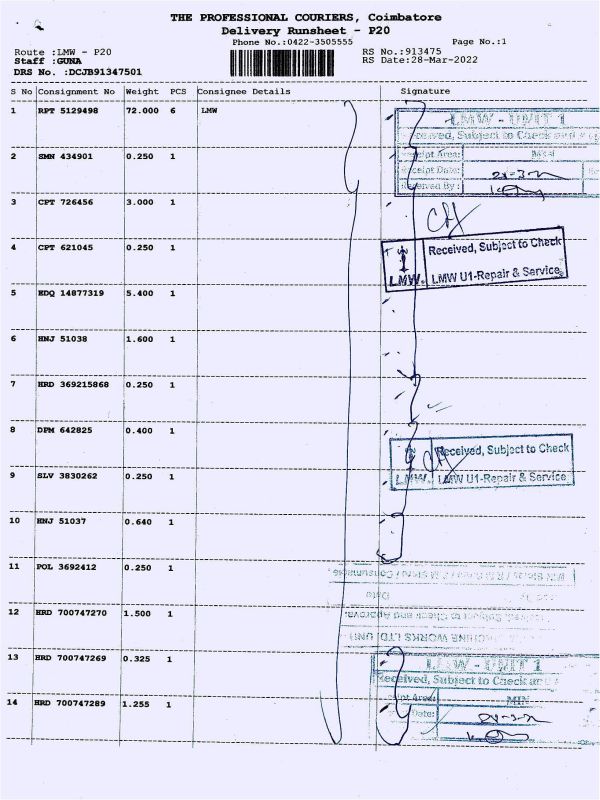 THE PROFESSIONAL COURIERS, Coimbatore
Delivery Runsheet - P20
Phone No.:0422-3505555 Page No.:1
Route :LMW - P20 RS No.:913475
Staff :GUNA RS Date:28-Mar-2022
DRS No. :DCJB91347501
S No Consignment No Weight PCS Consignee Details Signature
1 RPT 5129498 72.000 6 LMW
LMW - UNIT 1
Received, Subject to Check and
2 SMN 434901 0.250 1
Receipt Area:
Receipt Date:
Received By :
3 CPT 726456 3.000 1
4 CPT 621045 0.250 1
Received, Subject to Check
LMW. LMW U1-Repair & Service
5 EDQ 14877319 5.400 1
6 HNJ 51038 1.600 1
7 HRD 369215868 0.250 1
8 DPM 642825 0.400 1
Received, Subject to Check
LMW. LMW U1-Repair & Service
9 SLV 3830262 0.250 1
10 HNJ 51037 0.640 1
11 POL 3692412 0.250 1
Date
12 HRD 700747270 1.500 1
13 HRD 700747269 0.325 1
LMW - UNIT 1
Received, Subject to Check and
14 HRD 700747289 1.255 1
Date: